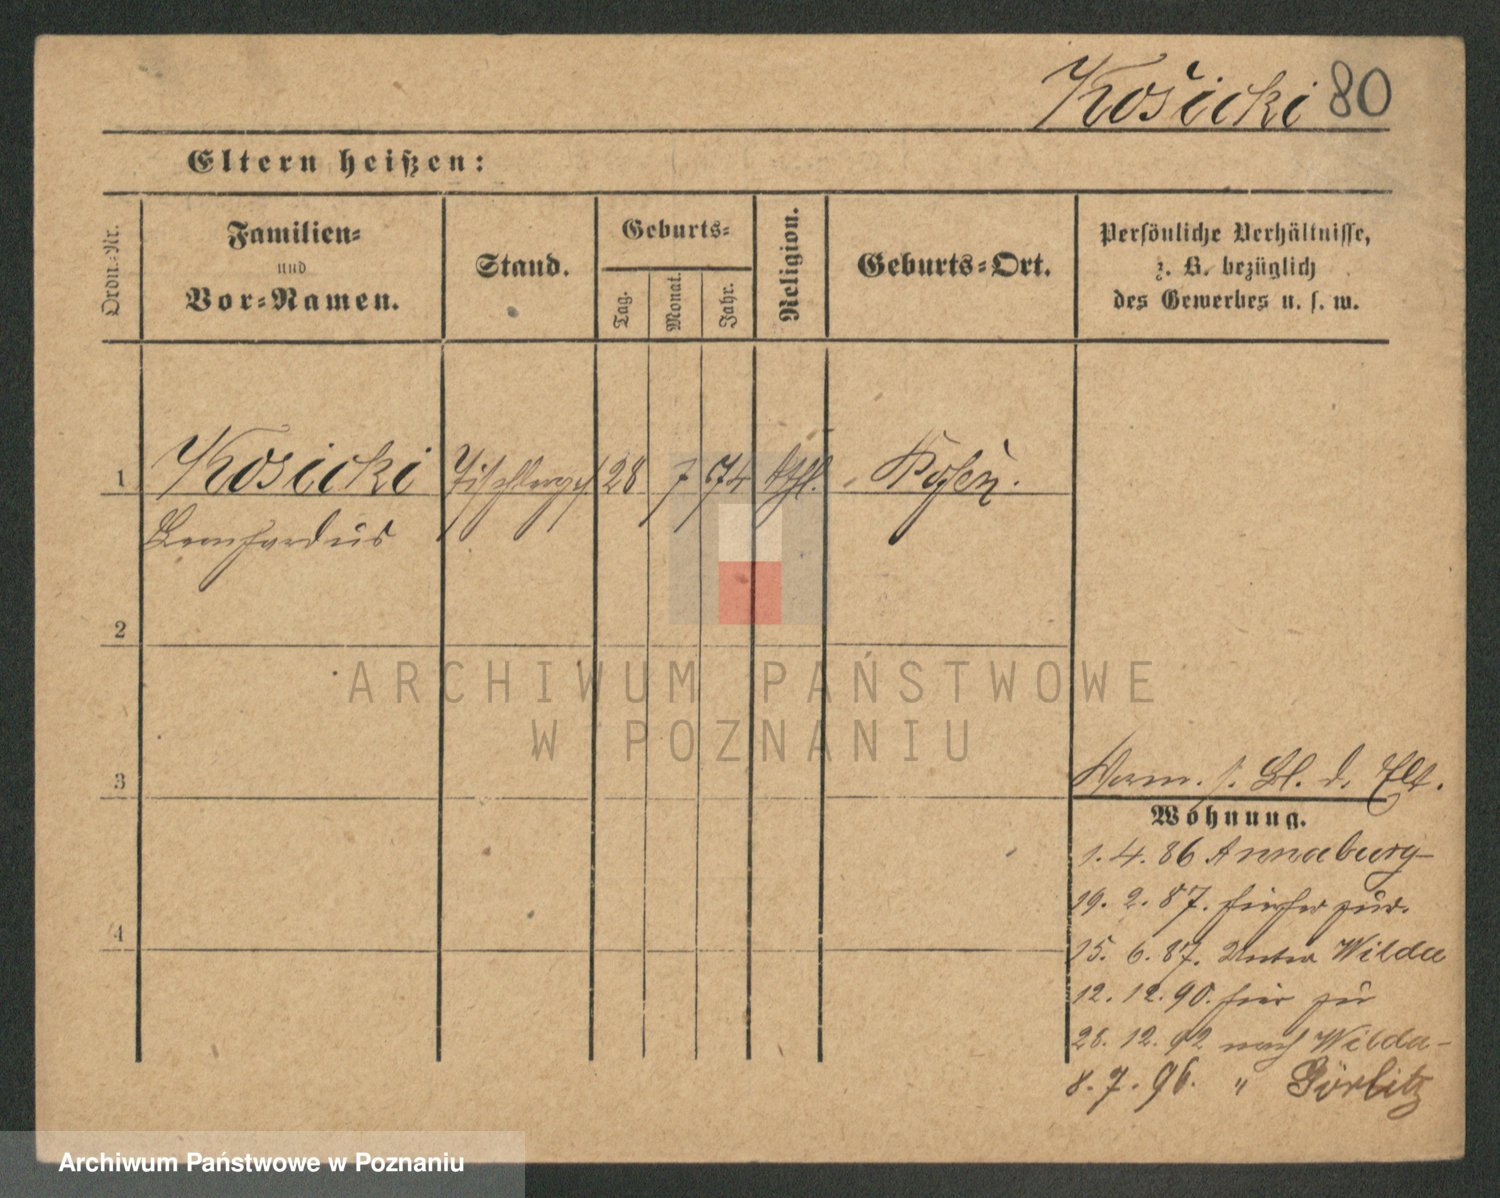 Kosicki 80
Eltern heißen:
Ordn.-Nr.
Familien-
und
Vor-Namen.
Stand.
Geburts-
Tag.
Monat.
Jahr.
Religion.
Geburts-Ort.
Persönliche Verhältnisse,
z. B. bezüglich
des Gewerbes u. s. w.
1 Kosicki Tischlerges 28 7 74 kthl. Posen.
Leonhardus
2
3
4
Verm. s. Bl. d. Elt.
Wohnung.
1. 4. 86 Annaberg
19. 2. 87. hierher zur.
15. 6. 87. Unter Wilda
12. 12. 90. hier zu
28. 12. 92 nach Wilda
8. 7. 96. " Görlitz
ARCHIWUM PAŃSTWOWE
W POZNANIU
Archiwum Państwowe w Poznaniu